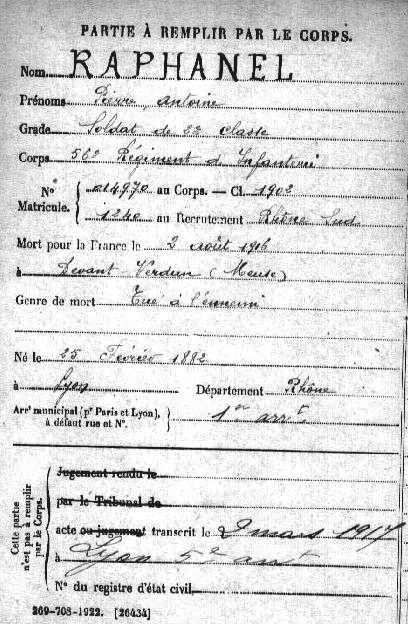 PARTIE À REMPLIR PAR LE CORPS.
Nom RAPHANEL
Prénoms Pierre Antoine
Grade Soldat de 2e classe
Corps 56e Régiment d'Infanterie
N° Matricule. { 014970 au Corps. — Cl. 1902
1240 au Recrutement Rhône Sud
Mort pour la France le 2 août 1916
à Devant Verdun (Meuse)
Genre de mort Tué à l'ennemi
Né le 25 Février 1882
à Lyon Département Rhône
Arrt municipal (pr Paris et Lyon), à défaut rue et N°. } 1er arrt
Cette partie n'est pas à remplir par le Corps.
Jugement rendu le
par le Tribunal de
acte ou jugement transcrit le 2 mars 1917
à Lyon 5e arrt
N° du registre d'état civil
269-708-1922. [26434]